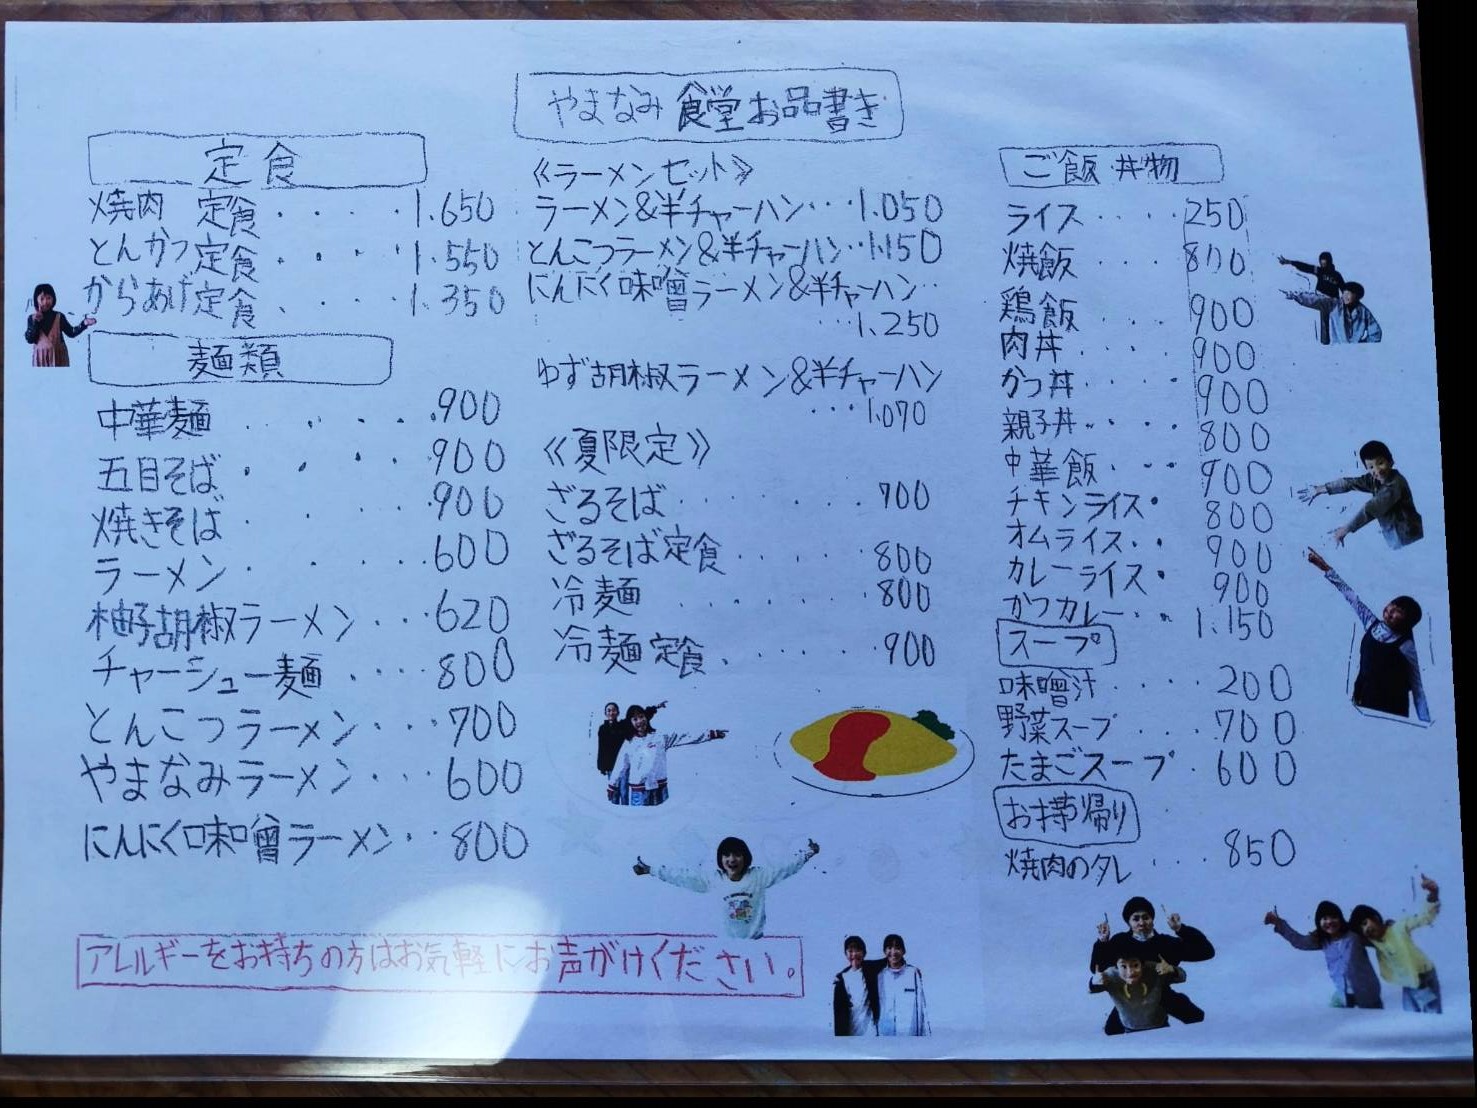 やまなみ食堂お品書き
定食
焼肉 定食・・・・1.650
とんかつ定食・・・・1.550
からあげ定食・・・・1.350
麺類
中華麺・・・・.900
五目そば・・・・900
焼きそば・・・・900
ラーメン・・・・600
柚子胡椒ラーメン・・・620
チャーシュー麺・・・800
とんこつラーメン・・・700
やまなみラーメン・・・600
にんにく味噌ラーメン・・800
《ラーメンセット》
ラーメン&半チャーハン・・・1.050
とんこつラーメン&半チャーハン・・1.150
にんにく味噌ラーメン&半チャーハン・・
・・・1.250
ゆず胡椒ラーメン&半チャーハン
・・・1.070
《夏限定》
ざるそば・・・・・・700
ざるそば定食・・・・・800
冷麺・・・・・・800
冷麺定食・・・・・・900
ご飯 丼物
ライス・・・・250
焼飯・・・・800
鶏飯・・・・900
肉丼・・・・900
かつ丼・・・・900
親子丼・・・・800
中華飯・・・・900
チキンライス・800
オムライス・・900
カレーライス・900
かつカレー・・1.150
スープ
味噌汁・・・・200
野菜スープ・・・700
たまごスープ・600
お持帰り
焼肉のタレ・・・850
アレルギーをお持ちの方はお気軽にお声がけください。